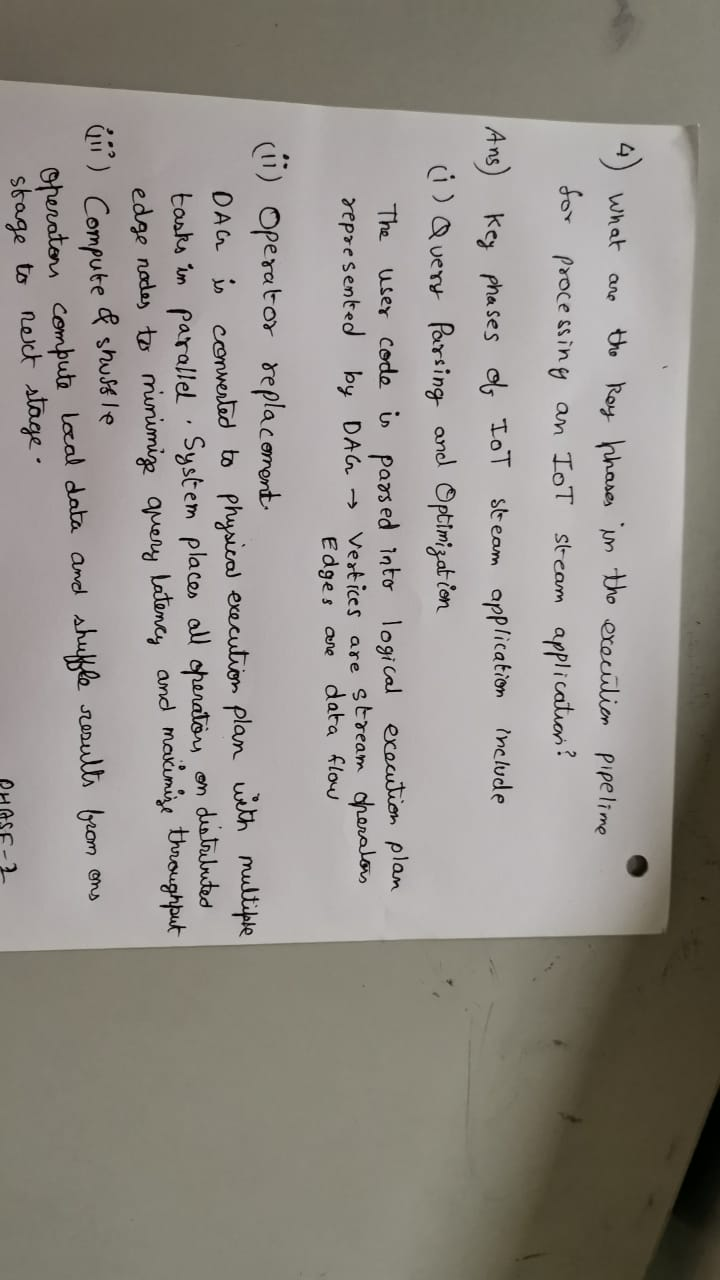 4) What are the key phases in the execution pipeline
for processing an IoT stream application?
Ans) Key phases of IoT stream application include
(i) Query Parsing and Optimization
The user code is parsed into logical execution plan
represented by DAG → Vertices are stream operators
Edges are data flow
(ii) Operator replacement.
DAG is converted to physical execution plan with multiple
tasks in parallel. System places all operators on distributed
edge nodes to minimize query latency and maximize throughput
(iii) Compute & shuffle
Operators compute local data and shuffle results from one
stage to next stage.
PHASE-2